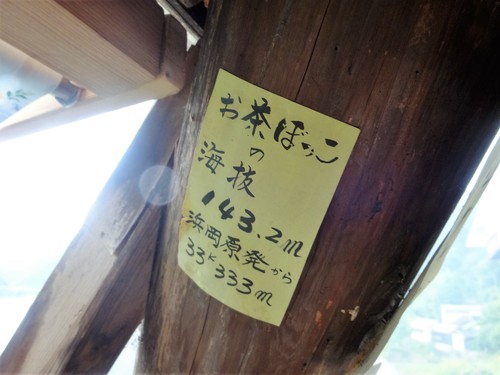 お茶ぼっこ
の
海抜
143.2m
浜岡原発から
33K333m